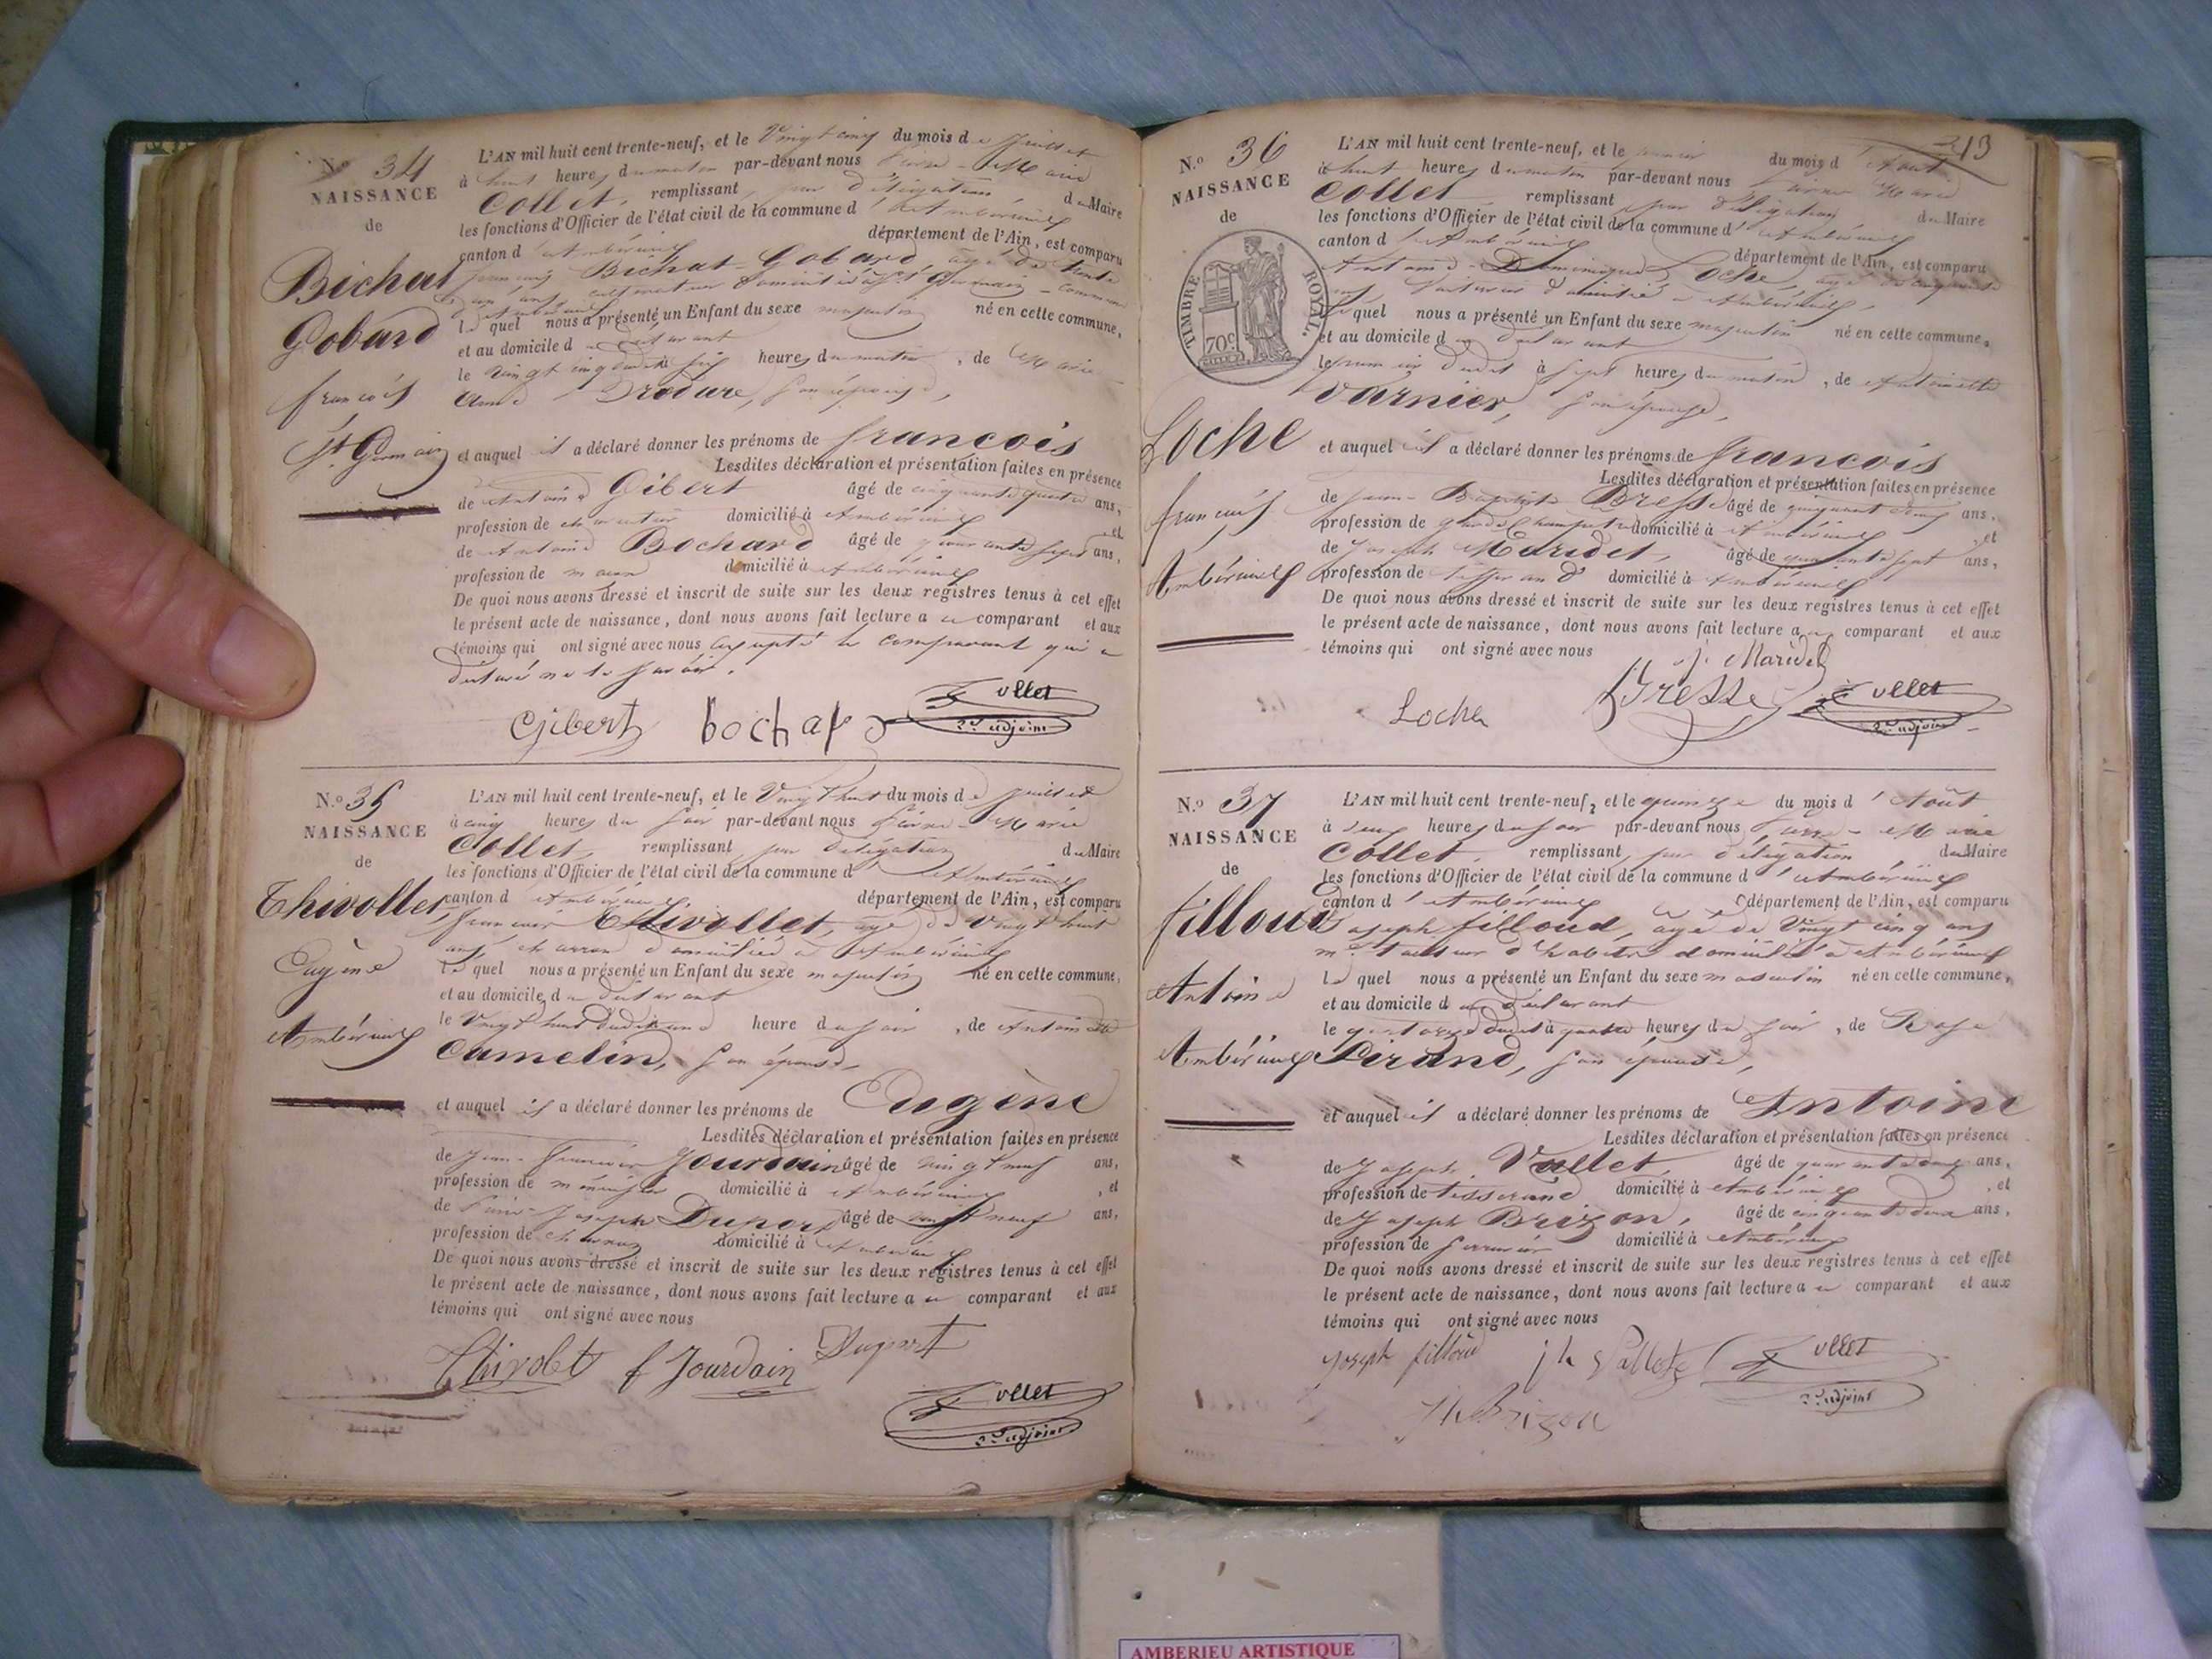 N.o 34
NAISSANCE
de
Bichat
Gobard
francois
St. Germain
L'AN mil huit cent trente-neuf, et le Vingt cinq du mois de Juillet
à huit heures du matin par-devant nous Pierre-Marie
Collet, remplissant, par délégation du Maire
les fonctions d'Officier de l'état civil de la commune d'Ambérieux
canton d'Ambérieux département de l'Ain, est comparu
francois Bichat-Gobard, âgé de trente
ans, cultivateur domicilié à St. Germain - commune
d'Ambérieux
lequel nous a présenté un Enfant du sexe masculin né en cette commune,
et au domicile du déclarant
le vingt cinq dudit à six heures du matin, de Marie
Anne Brodure, son épouse,
et auquel il a déclaré donner les prénoms de francois
Lesdites déclaration et présentation faites en présence
de Antoine Gibert âgé de cinquante quatre ans,
profession de charcutier domicilié à Ambérieux, et
de Antoine Bochard âgé de quarante sept ans,
profession de maçon domicilié à Ambérieux
De quoi nous avons dressé et inscrit de suite sur les deux registres tenus à cet effet
le présent acte de naissance, dont nous avons fait lecture au comparant et aux
témoins qui ont signé avec nous excepté le comparant qui a
déclaré ne le savoir.
Gibert bochard Collet
2e. adjoint
N.o 35
NAISSANCE
de
Thivollet
Eugène
Ambérieux
L'AN mil huit cent trente-neuf, et le Vingt huit du mois de Juillet
à cinq heures du soir par-devant nous Pierre-Marie
Collet, remplissant, par délégation du Maire
les fonctions d'Officier de l'état civil de la commune d'Ambérieux
canton d'Ambérieux département de l'Ain, est comparu
francois Thivollet, âgé de Vingt huit
ans, charron domicilié à Ambérieux
lequel nous a présenté un Enfant du sexe masculin né en cette commune,
et au domicile du déclarant
le Vingt huit dudit à une heure du soir, de Antoinette
Camelin, son épouse,
et auquel il a déclaré donner les prénoms de Eugène
Lesdites déclaration et présentation faites en présence
de Jean-francois Jourdain âgé de vingt neuf ans,
profession de menuisier domicilié à Ambérieux, et
de Pierre-Joseph Duport âgé de vingt neuf ans,
profession de domicilié à Ambérieux
De quoi nous avons dressé et inscrit de suite sur les deux registres tenus à cet effet
le présent acte de naissance, dont nous avons fait lecture au comparant et aux
témoins qui ont signé avec nous
Thivolet f Jourdain Duport
Collet
2e. adjoint
213
N.o 36
NAISSANCE
de
TIMBRE ROYAL.
70c
Loche
francois
Ambérieux
L'AN mil huit cent trente-neuf, et le premier du mois d'Aout
à huit heures du matin par-devant nous Pierre Marie
Collet remplissant, par délégation du Maire
les fonctions d'Officier de l'état civil de la commune d'Ambérieux
canton d'Ambérieux département de l'Ain, est comparu
Antoine-Dominique Loche, âgé de cinquante
ans, domicilié à Ambérieux,
lequel nous a présenté un Enfant du sexe masculin né en cette commune,
et au domicile du déclarant
le premier dudit à sept heures du matin, de Antoinette
Varnier, son épouse,
et auquel il a déclaré donner les prénoms de francois
Lesdites déclaration et présentation faites en présence
de Jean-Baptiste Bresse âgé de ans,
profession de garde Champêtre domicilié à Ambérieux, et
de Joseph Maridet, âgé de quarante sept ans,
profession de tisserand domicilié à Ambérieux
De quoi nous avons dressé et inscrit de suite sur les deux registres tenus à cet effet
le présent acte de naissance, dont nous avons fait lecture au comparant et aux
témoins qui ont signé avec nous
J. Maridet
Loche Bresse Collet
2e. adjoint
N.o 37
NAISSANCE
de
filloud
Antoine
Ambérieux
L'AN mil huit cent trente-neuf, et le quinze du mois d'Août
à deux heures du soir par-devant nous Pierre-Marie
Collet, remplissant, par délégation du Maire
les fonctions d'Officier de l'état civil de la commune d'Ambérieux
canton d'Ambérieux département de l'Ain, est comparu
Joseph filloud, âgé de Vingt cinq ans
md. tailleur d'habits domicilié à Ambérieux
lequel nous a présenté un Enfant du sexe masculin né en cette commune,
et au domicile du déclarant
le quatorze dudit à quatre heures du soir, de Rose
Pirand, son épouse,
et auquel il a déclaré donner les prénoms de Antoine
Lesdites déclaration et présentation faites en présence
de Joseph Vallet, âgé de ans,
profession de tisserand domicilié à Ambérieux, et
de Joseph Brizon, âgé de cinquante deux ans,
profession de serrurier domicilié à Ambérieux
De quoi nous avons dressé et inscrit de suite sur les deux registres tenus à cet effet
le présent acte de naissance, dont nous avons fait lecture au comparant et aux
témoins qui ont signé avec nous
Joseph filloud jh Vallet Collet
2e. adjoint
Jh Brizon
AMBERIEU ARTISTIQUE